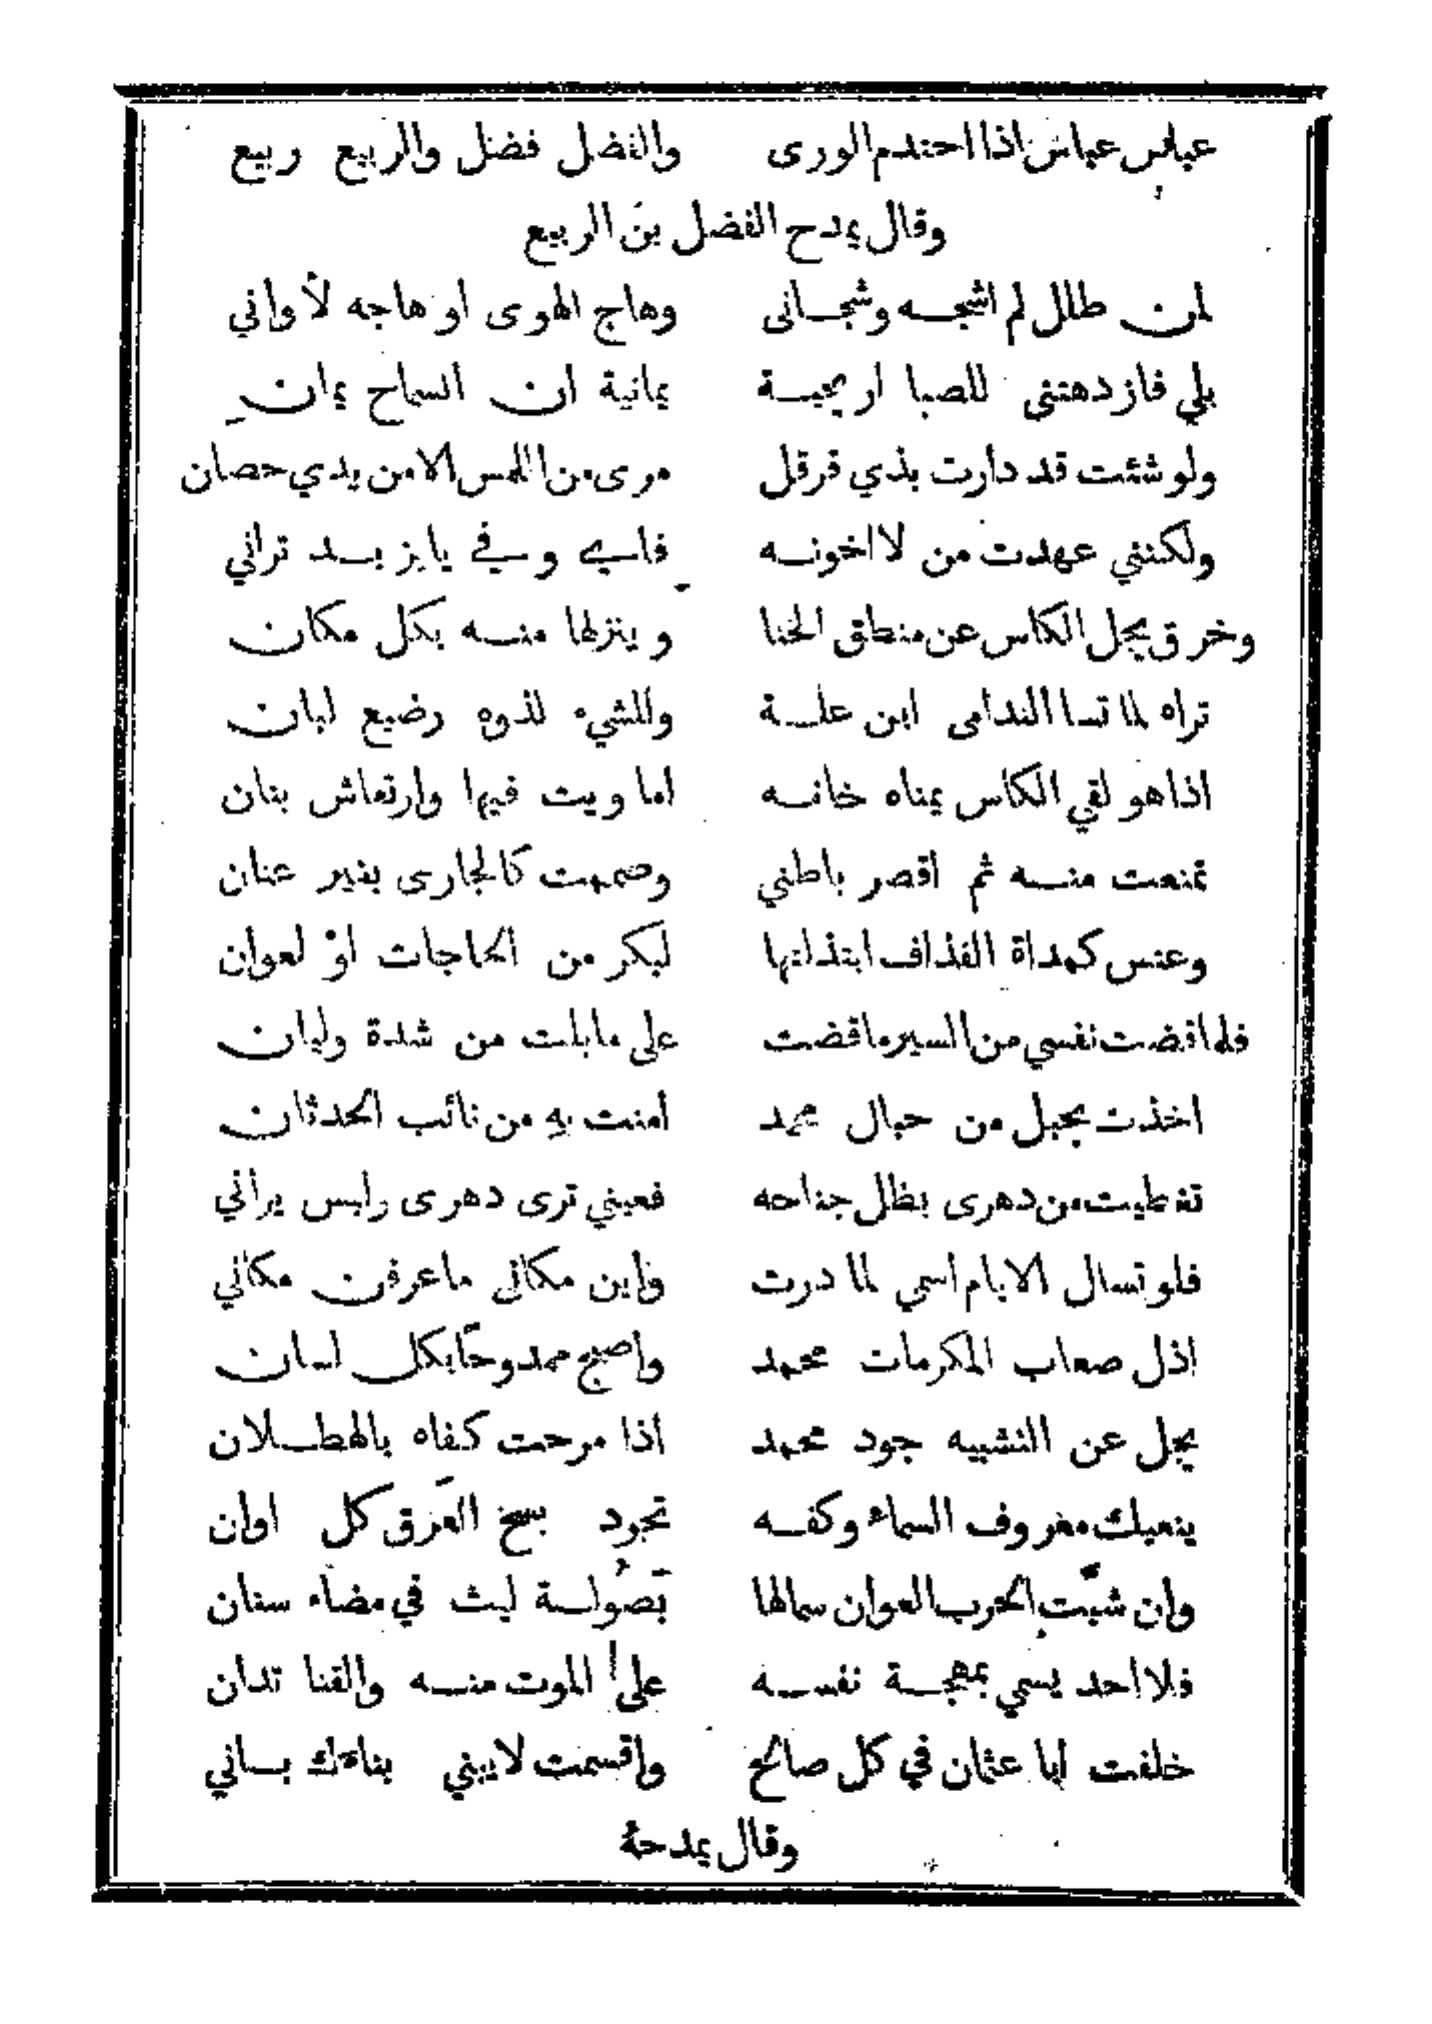 عباس عباس اذا احتدم الورى والفضل فضل والربيع ربيع
وقال يمدح الفضل بن الربيع
لمن طلل لم اشجه وشجانى وهاج الهوى او هاجه لأوانى
بلي فازدهتنى للصبا اريحية يمانية ان السماح يمان
ولو شئت قد دارت بذي قرقل من اللمس الا من يدي حصان
ولكنني عهدت من لا اخونه فاي وفي يا يزيد ترانى
وخرق يجل الكاس عن منطق الخنا وينزلها منه بكل مكان
تراه لما تسا الندامى ابن علة وللشيء لذوه رضيع لبان
اذا هو لقي الكاس يمناه خانه اماويت فيها وارتعاش بنان
تمنعت منه ثم اقصر باطني وصممت كالجارى بغير عنان
وعنس كمداة القذاف ابتذلتها لبكر من الحاجات اوْ لعوان
فلما قضت نفسي من السير ما قضت على ما بلت من شدة وليان
اخذت بحبل من حبال محمد امنت بهِ من نائب الحدثان
تغطيت من دهرى بظل جناحه فعيني ترى دهرى وليس يراني
فلو تسال الايام اسمي لما درت واين مكانى ما عرفن مكاني
اذل صعاب المكرمات محمد واصبح ممدوحًا بكل لسان
يجل عن التشبيه جود محمد اذا مرحت كفاه بالهطلان
يغبك معروف السماء وكفه تجود بسح العرق كل اوان
وان شبّت الحرب العوان سمالها بَصُولة ليث في مضاء سنان
فلا احد يسخي بمهجة نفسه على الموت منه والقنا تدان
خلفت ابا عثمان في كل صالح واقسمت لا يبني بناءك بانى
وقال يمدحهُ